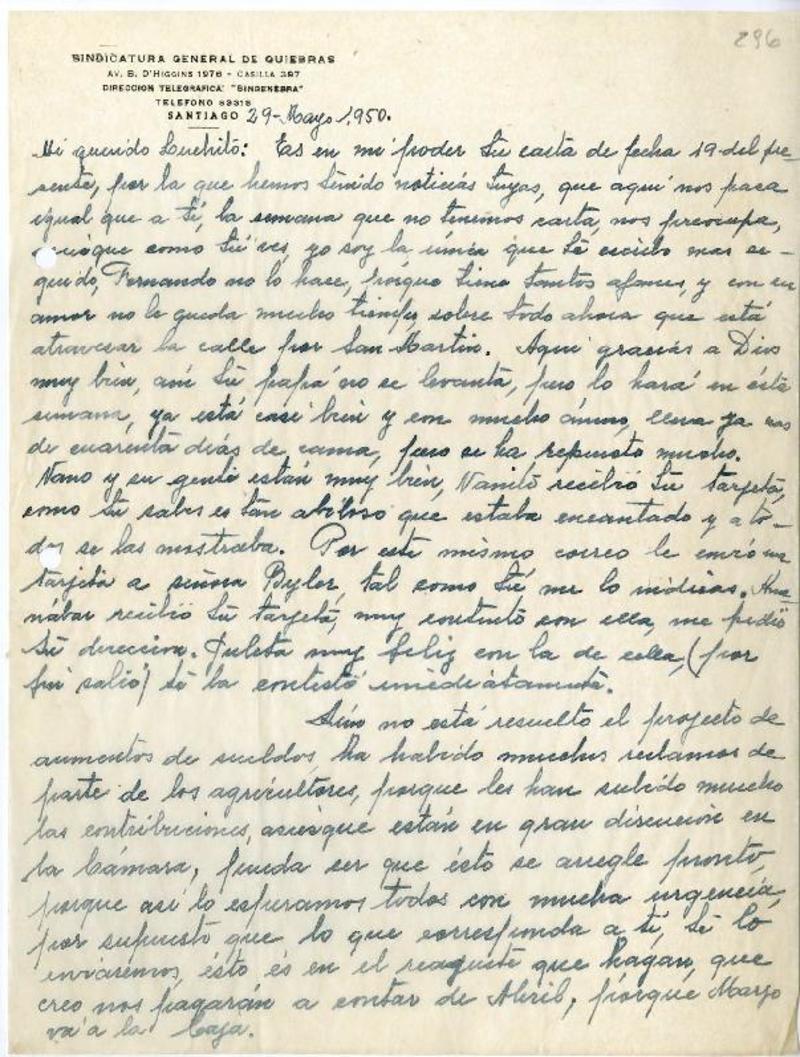 296
SINDICATURA GENERAL DE QUIEBRAS
AV. B. O'HIGGINS 1976 - CASILLA 397
DIRECCION TELEGRAFICA "SINGENEBRA"
TELEFONO 83318
SANTIAGO 29-Mayo 1950.
Mi querido Luchito: Es en mi poder tu carta de fecha 19-del pre-
sente, por la que hemos tenido noticias tuyas, que aquí nos pasa
igual que a tí, la semana que no tenemos carta, nos preocupa,
como tú ves, yo soy la única que te escribo mas se-
guido, Fernando no lo hace, porque tiene tantos afanes, y con su
amor no le queda mucho tiempo, sobre todo ahora que está
atravesar la calle por San Martin. Aquí gracias a Dios
muy bién, aún tu papá no se levanta, pero lo hará en ésta
semana, ya está casi bién y con mucho ánimo, lleva ya mas
de cuarenta dias de cama, pero se ha repuesto mucho.
Nano y su gente están muy bién, Nanito recibió tu tarjeta,
como tu sabes es tan que estaba encantado y a to-
dos se las mostraba. Por este mismo correo le envío una
tarjeta a señora Byler, tal como tú me lo indicas.
recibió tu tarjeta, muy contento con ella, me pidió
tú direccion. Julieta muy feliz con la de ella, (por
fin salió) te la contestó inmediatamente.
Aún no está resuelto el proyecto de
aumentos de sueldos, ha habido muchos reclamos de
parte de los agricultores, porque les han subido mucho
las contribuciones, asiesque están en gran discución en
la Cámara, pueda ser que ésto se arregle pronto,
porque así lo esperamos todos con mucha urgencia,
por supuesto que lo que corresponda a tí, te lo
enviaremos, ésto és en el reajuste que hagan, que
creo nos pagarán a contar de Abril, porque Marzo
va a la Caja.